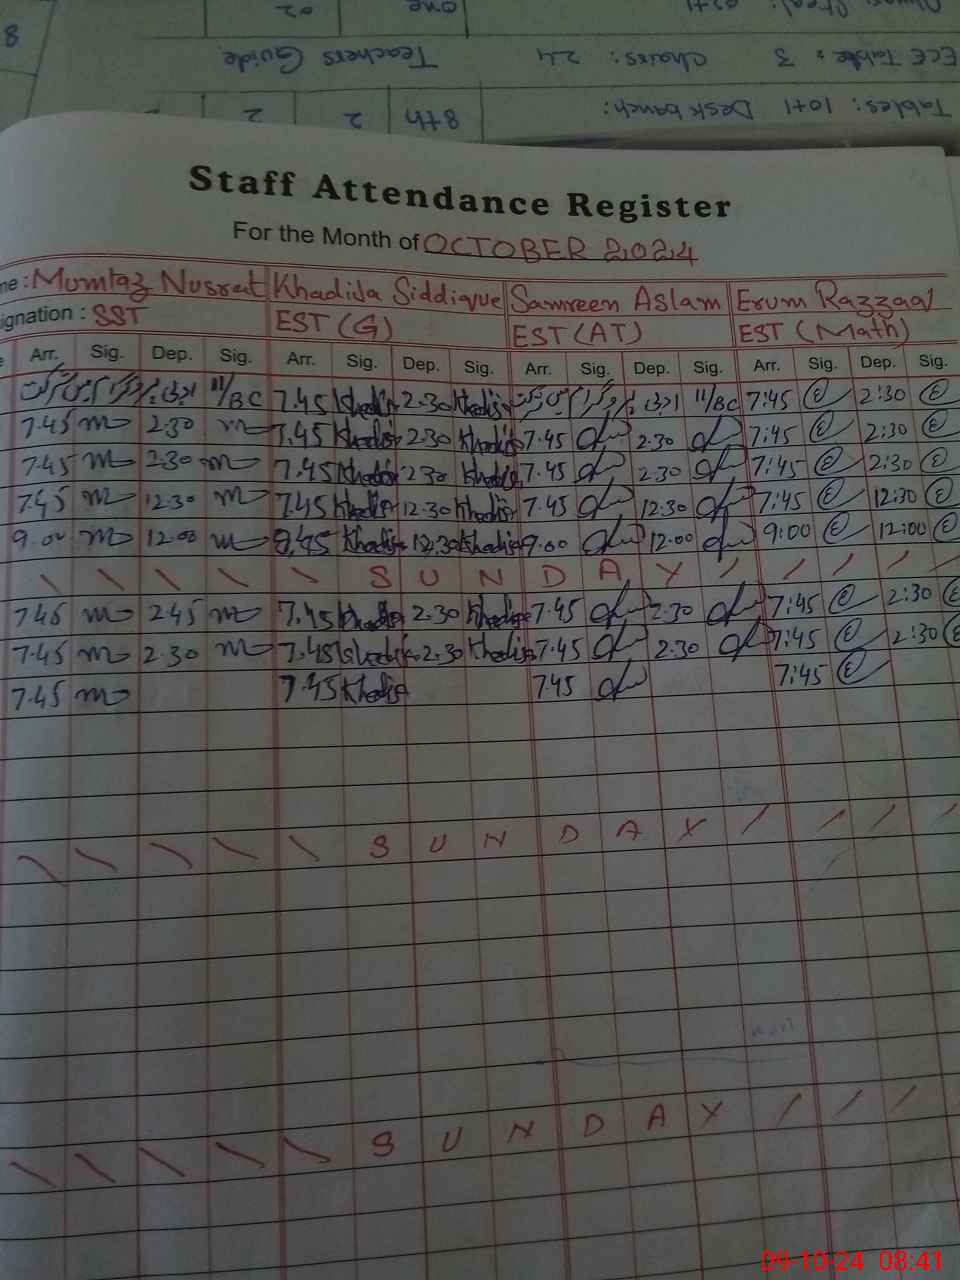 one 02
ECE Table: 3 Chairs: 24 Teachers Guide
Tables: 10+1 Desk banch: 8th 2 2
Staff Attendance Register
For the Month of OCTOBER 2024
me: Mumtaz Nusrat Khadija Siddique Samreen Aslam Erum Razzaq
ignation: SST EST (G) EST (AT) EST (Math)
Arr. Sig. Dep. Sig. Arr. Sig. Dep. Sig. Arr. Sig. Dep. Sig. Arr. Sig. Dep. Sig.
11/BC 7.45 Khadija 2.30 Khadija 11/BC 7:45 2:30
7.45 m 2.30 m 7.45 Khadija 2.30 Khadija 7.45 2.30 7:45 2:30
7.45 m 2.30 m 7.45 Khadija 2.30 Khadija 7.45 2.30 7:45 2:30
7.45 m 12.30 m 7.45 Khadija 12.30 Khadija 7.45 12.30 7:45 12:30
9.00 m 12.00 m 8.45 Khadija 12.30 Khadija 9.00 12.00 9:00 12:00
S U N D A Y
7.45 m 2.45 m 7.45 Khadija 2.30 Khadija 7.45 2.30 7:45 2:30
7.45 m 2.30 m 7.45 Khadija 2.30 Khadija 7.45 2.30 7:45 2:30
7.45 m 7.45 Khadija 7.45 7:45
S U N D A Y
S U N D A Y
09-10-24 08:41